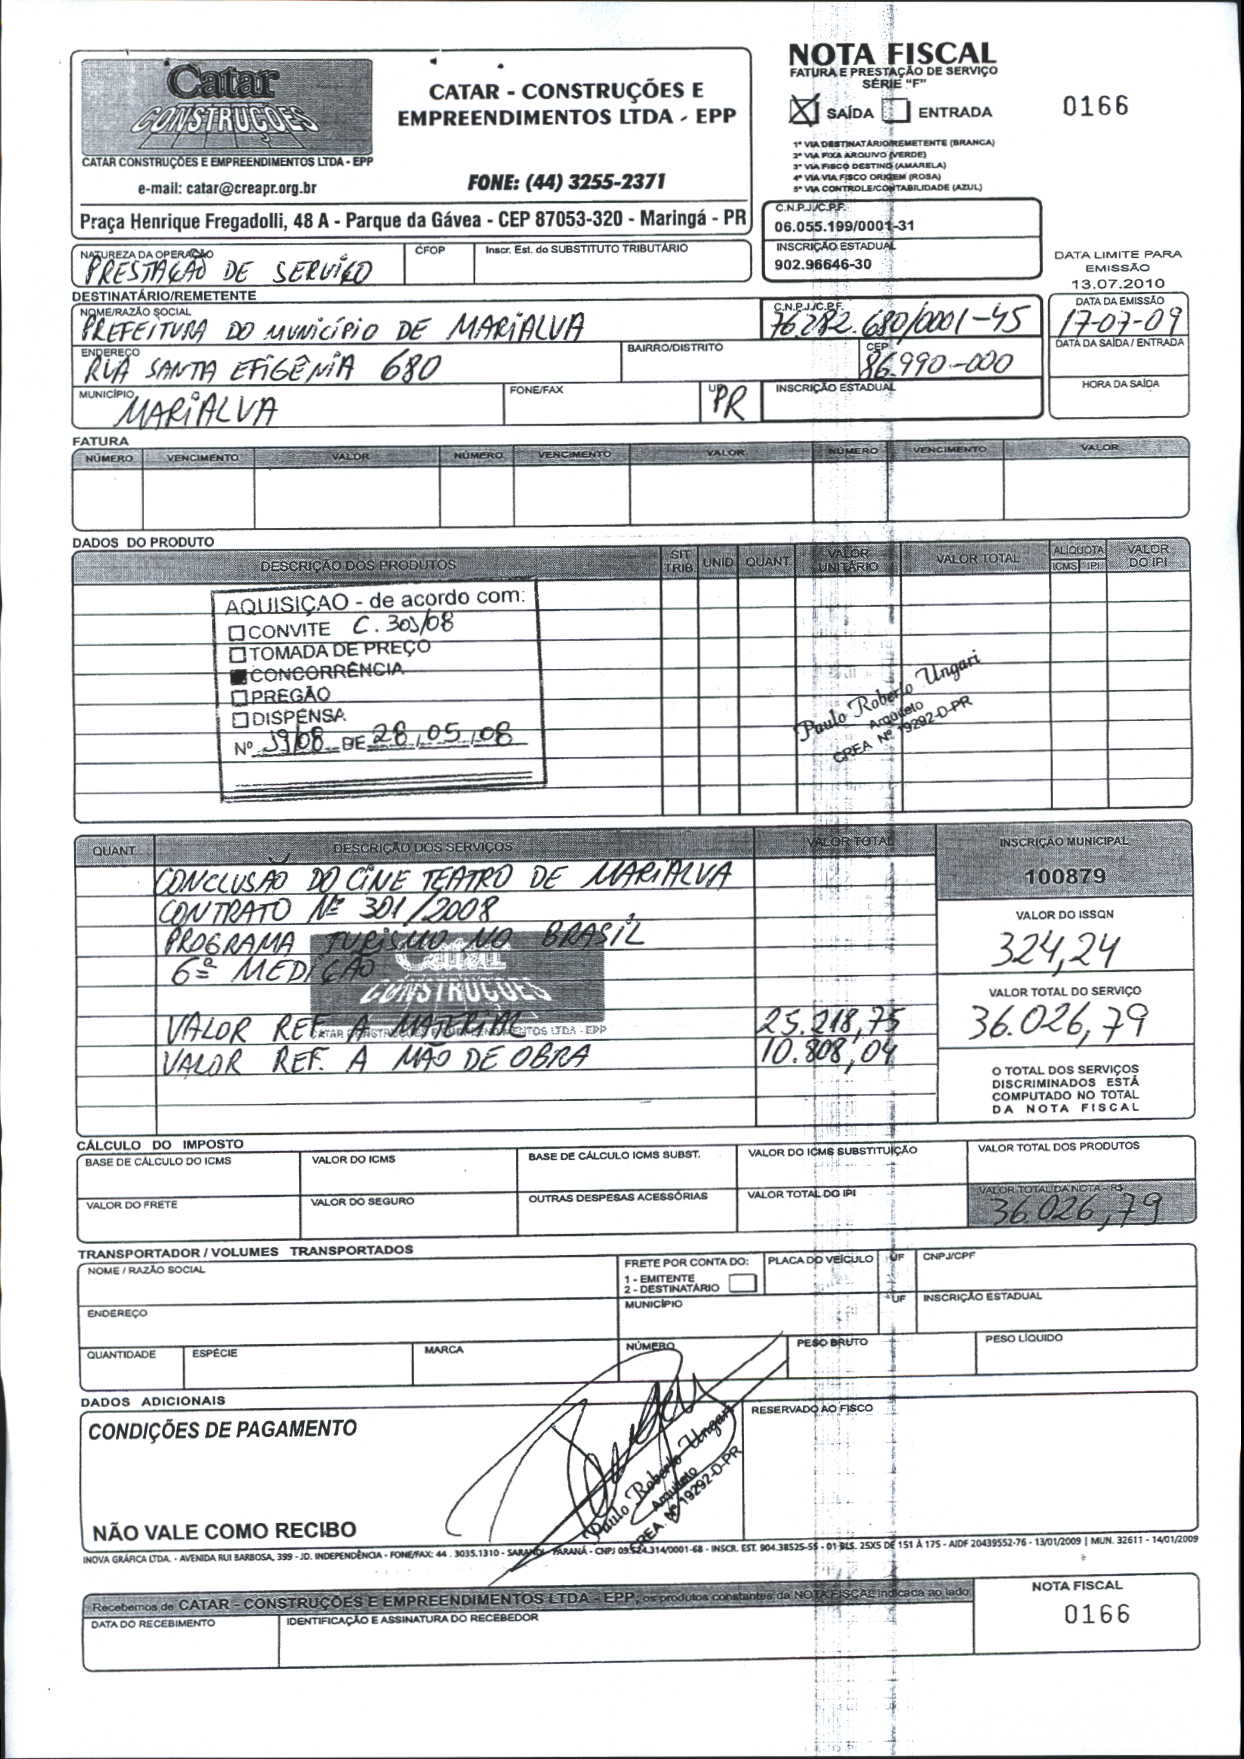 Catar
CONSTRUÇÕES
CATAR CONSTRUÇÕES E EMPREENDIMENTOS LTDA - EPP
e-mail: catar@creapr.org.br
CATAR - CONSTRUÇÕES E
EMPREENDIMENTOS LTDA - EPP
FONE: (44) 3255-2371
Praça Henrique Fregadolli, 48 A - Parque da Gávea - CEP 87053-320 - Maringá - PR
NOTA FISCAL
FATURA E PRESTAÇÃO DE SERVIÇO
SÉRIE "F"
X SAÍDA ENTRADA
0166
1ª VIA DESTINATÁRIO/REMETENTE (BRANCA)
2ª VIA FIXA ARQUIVO (VERDE)
3ª VIA FISCO DESTINO (AMARELA)
4ª VIA VIA FISCO ORIGEM (ROSA)
5ª VIA CONTROLE/CONTABILIDADE (AZUL)
C.N.P.J./C.P.F.
06.055.199/0001-31
INSCRIÇÃO ESTADUAL
902.96646-30
DATA LIMITE PARA
EMISSÃO
13.07.2010
NATUREZA DA OPERAÇÃO
PRESTAÇÃO DE SERVIÇO
CFOP
Inscr. Est. do SUBSTITUTO TRIBUTÁRIO
DESTINATÁRIO/REMETENTE
NOME/RAZÃO SOCIAL
PREFEITURA DO MUNICÍPIO DE MARIALVA
C.N.P.J./C.P.F.
76.282.680/0001-45
DATA DA EMISSÃO
17-07-09
ENDEREÇO
RUA SANTA EFIGÊNIA 680
BAIRRO/DISTRITO
CEP
86.990-000
DATA DA SAÍDA / ENTRADA
MUNICÍPIO
MARIALVA
FONE/FAX
UF
PR
INSCRIÇÃO ESTADUAL
HORA DA SAÍDA
FATURA
NÚMERO VENCIMENTO VALOR NÚMERO VENCIMENTO VALOR NÚMERO VENCIMENTO VALOR
DADOS DO PRODUTO
DESCRIÇÃO DOS PRODUTOS SIT. TRIB. UNID. QUANT. VALOR UNITÁRIO VALOR TOTAL ALÍQUOTA ICMS IPI VALOR DO IPI
AQUISIÇÃO - de acordo com:
CONVITE C. 301/08
TOMADA DE PREÇO
CONCORRÊNCIA
PREGÃO
DISPENSA
Nº 39/08 DE 28,05,08
Paulo Roberto Ungari
Arquiteto
CREA Nº 19292-D-PR
QUANT. DESCRIÇÃO DOS SERVIÇOS VALOR TOTAL
INSCRIÇÃO MUNICIPAL
100879
CONCLUSÃO DO CINE TEATRO DE MARIALVA
CONTRATO Nº 301/2008
PROGRAMA TURISMO NO BRASIL
6ª MEDIÇÃO
Catar
CONSTRUÇÕES
CATAR CONSTRUÇÕES E EMPREENDIMENTOS LTDA - EPP
VALOR REF. A MATERIAL 25.218,75
VALOR REF. A MÃO DE OBRA 10.808,04
VALOR DO ISSQN
324,24
VALOR TOTAL DO SERVIÇO
36.026,79
O TOTAL DOS SERVIÇOS
DISCRIMINADOS ESTÁ
COMPUTADO NO TOTAL
DA NOTA FISCAL
CÁLCULO DO IMPOSTO
BASE DE CÁLCULO DO ICMS VALOR DO ICMS BASE DE CÁLCULO ICMS SUBST. VALOR DO ICMS SUBSTITUIÇÃO VALOR TOTAL DOS PRODUTOS
VALOR DO FRETE VALOR DO SEGURO OUTRAS DESPESAS ACESSÓRIAS VALOR TOTAL DO IPI VALOR TOTAL DA NOTA - R$
36.026,79
TRANSPORTADOR / VOLUMES TRANSPORTADOS
NOME / RAZÃO SOCIAL
FRETE POR CONTA DO:
1 - EMITENTE
2 - DESTINATÁRIO
PLACA DO VEÍCULO UF CNPJ/CPF
ENDEREÇO MUNICÍPIO UF INSCRIÇÃO ESTADUAL
QUANTIDADE ESPÉCIE MARCA NÚMERO PESO BRUTO PESO LÍQUIDO
DADOS ADICIONAIS
CONDIÇÕES DE PAGAMENTO
RESERVADO AO FISCO
Paulo Roberto Ungari
Arquiteto
CREA Nº 19292-D-PR
NÃO VALE COMO RECIBO
INOVA GRÁFICA LTDA. - AVENIDA RUI BARBOSA, 399 - JD. INDEPENDÊNCIA - FONE/FAX: 44 . 3035.1310 - SARANDI - PARANÁ - CNPJ 09.524.314/0001-68 - INSCR. EST. 904.38525-55 - 01 BLS. 25X5 DE 151 À 175 - AIDF 20439552-76 - 13/01/2009 | MUN. 32611 - 14/01/2009
Recebemos de CATAR - CONSTRUÇÕES E EMPREENDIMENTOS LTDA - EPP, os produtos constantes da NOTA FISCAL indicada ao lado
DATA DO RECEBIMENTO IDENTIFICAÇÃO E ASSINATURA DO RECEBEDOR
NOTA FISCAL
0166